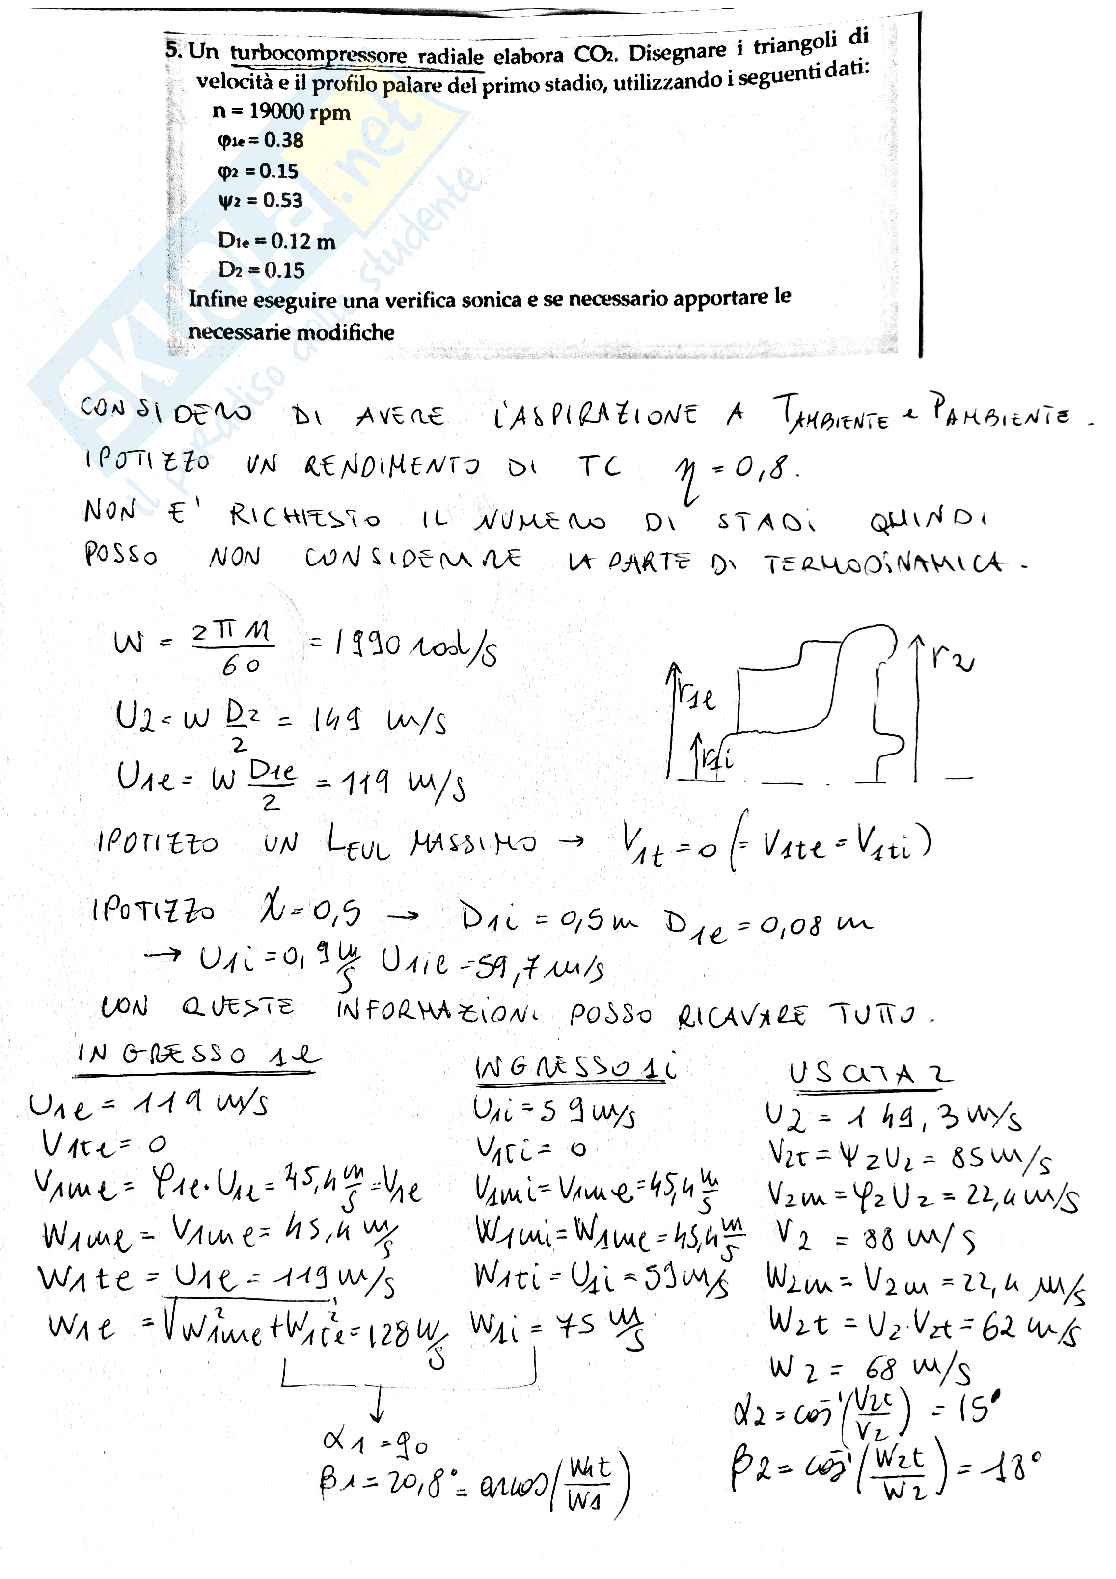 5. Un turbocompressore radiale elabora CO₂. Disegnare i triangoli di
velocità e il profilo palare del primo stadio, utilizzando i seguenti dati:
n = 19000 rpm
φ1e = 0.38
φ2 = 0.15
ψ2 = 0.53
D1e = 0.12 m
D2 = 0.15
Infine eseguire una verifica sonica e se necessario apportare le
necessarie modifiche
SKUOLA.net
il paradiso dello studente
CONSIDERO DI AVERE L'ASPIRAZIONE A TAMBIENTE e PAMBIENTE.
IPOTIZZO UN RENDIMENTO DI TC η = 0,8.
NON E' RICHIESTO IL NUMERO DI STADI QUINDI
POSSO NON CONSIDERARE LA PARTE DI TERMODINAMICA.
W = 2πn/60 = 1990 rad/s
U2 = W D2/2 = 149 m/s
U1e = W D1e/2 = 119 m/s
r1e r1i r2
IPOTIZZO UN LEUL MASSIMO → V1t = 0 (= V1te = V1ti)
IPOTIZZO X = 0,5 → D1i = 0,5m D1e = 0,08 m
→ U1i = 0,9 m/s U1ie = 59,7 m/s
CON QUESTE INFORMAZIONI POSSO RICAVARE TUTTO.
INGRESSO 1e
U1e = 119 m/s
V1te = 0
V1me = φ1e·U1e = 45,4 m/s = V1e
W1me = V1me = 45,4 m/s
W1te = U1e = 119 m/s
W1e = √W²1me + W1te² = 128 m/s
INGRESSO 1i
U1i = 59 m/s
V1ti = 0
V1mi = V1me = 45,4 m/s
W1mi = W1me = 45,4 m/s
W1ti = U1i = 59 m/s
W1i = 75 m/s
α1 = 90
β1 = 20,8° = arcos(W1t/W1)
USCITA 2
U2 = 149,3 m/s
V2t = ψ2U2 = 85 m/s
V2m = φ2U2 = 22,4 m/s
V2 = 88 m/s
W2m = V2m = 22,4 m/s
W2t = U2·V2t = 62 m/s
W2 = 68 m/s
α2 = cos⁻¹(V2t/V2) = 15°
β2 = cos⁻¹(W2t/W2) = 18°